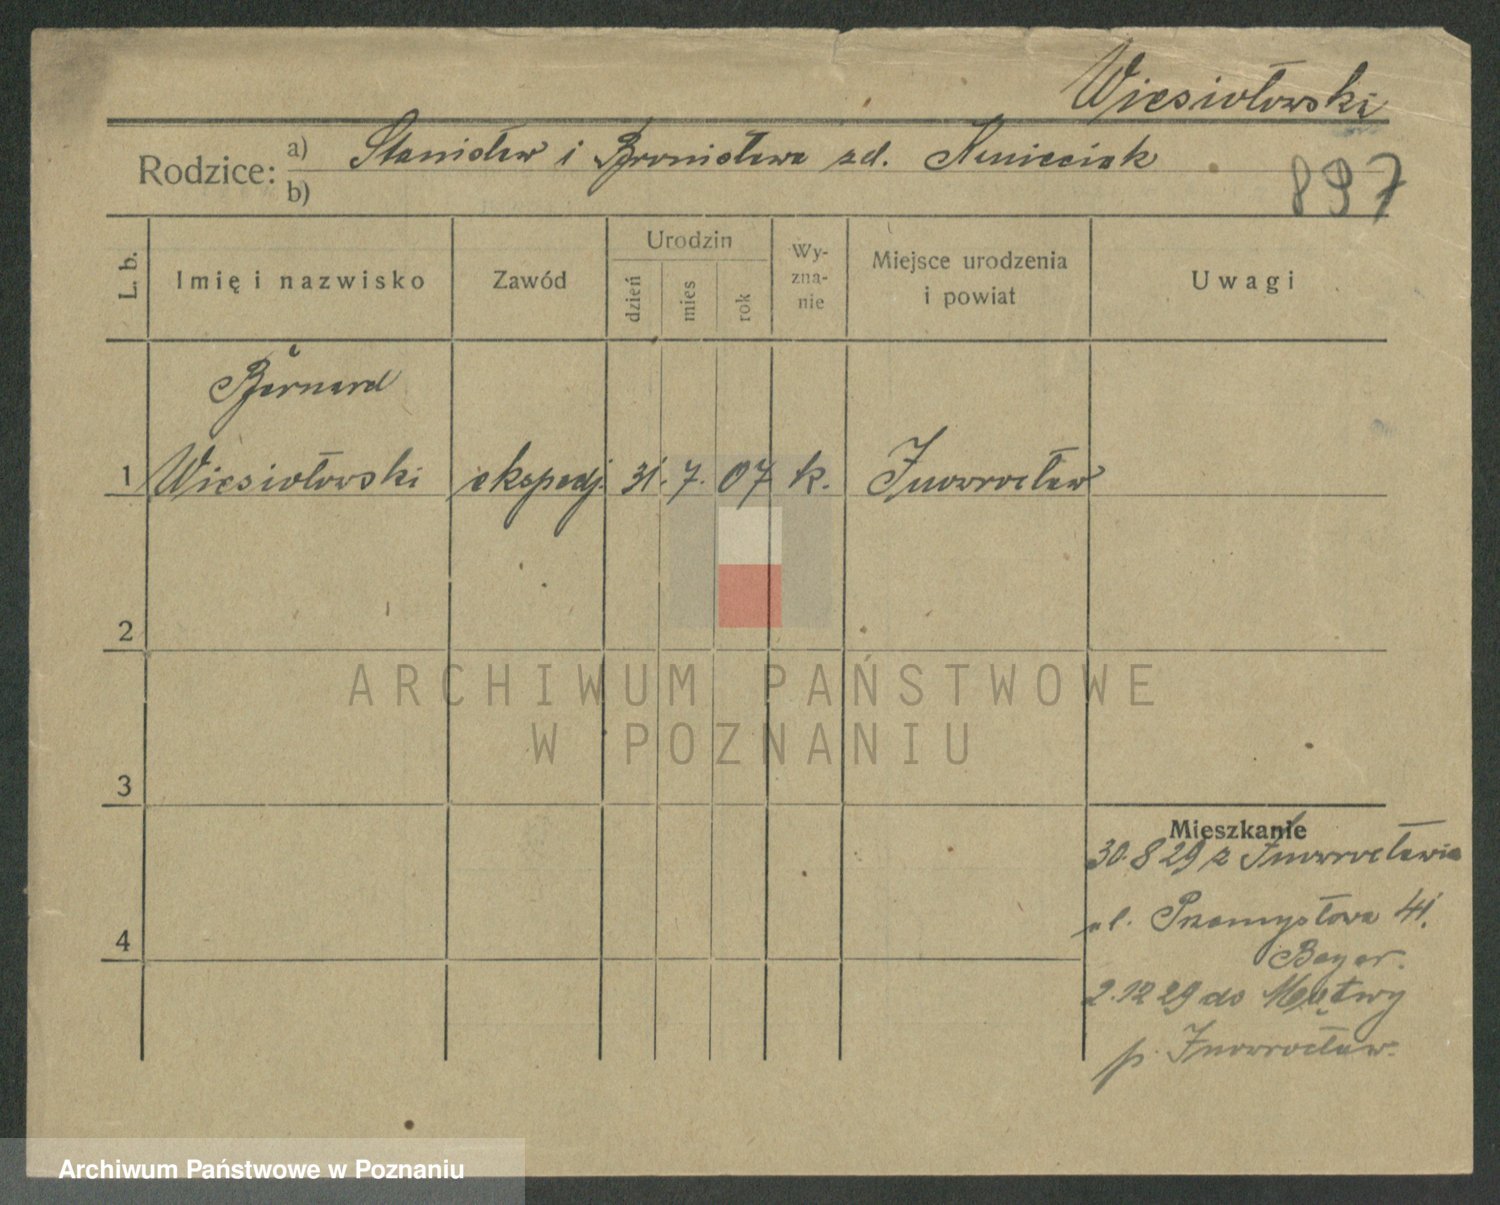 Wiesiołowski
Rodzice: a) Stanisław i Bronisława zd.
b)
897
L. b.
Imię i nazwisko
Zawód
Urodzin
dzień
mies
rok
Wy-
zna-
nie
Miejsce urodzenia
i powiat
Uwagi
Bernard
1 Wiesiołowski ekspedj. 31. 7. 07 k. Inowrocław
2
3
4
Mieszkanie
30.8 29 z Inowrocławia
ul. Przemysłowa 41.
Beyer.
2.12 29 do Mątwy
p. Inowrocław.
ARCHIWUM PAŃSTWOWE
W POZNANIU
Archiwum Państwowe w Poznaniu